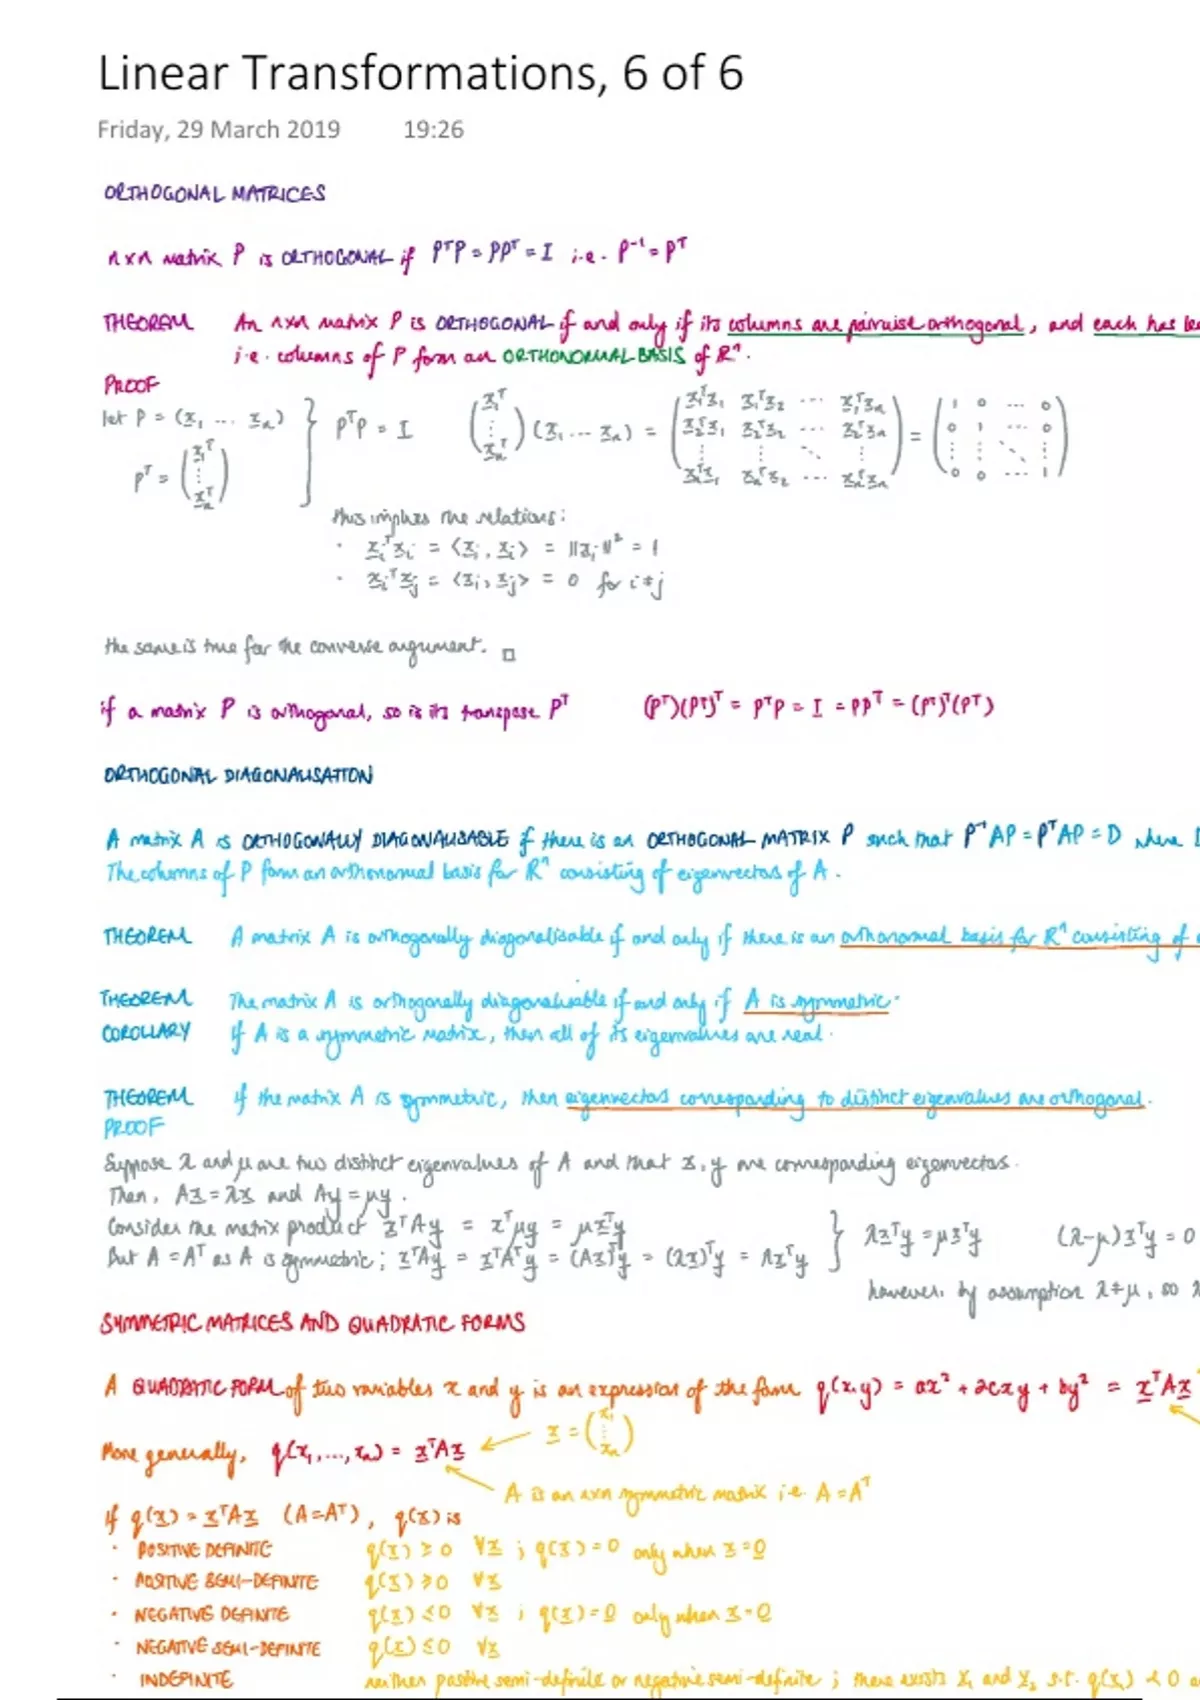 Linear Transformations, 6 of 6
Friday, 29 March 2019 19:26
ORTHOGONAL MATRICES
n×n matrix P is ORTHOGONAL if PᵀP = PPᵀ = I i.e. P⁻¹ = Pᵀ
THEOREM An n×n matrix P is ORTHOGONAL if and only if its columns are pairwise orthogonal, and each has
i.e. columns of P form an ORTHONORMAL BASIS of ℝⁿ.
PROOF
let P = (x₁ ... xₙ) } PᵀP = I (x₁ᵀ ⋮ xₙᵀ)(x₁ ... xₙ) = (x₁ᵀx₁ x₁ᵀx₂ ... x₁ᵀxₙ
x₂ᵀx₁ x₂ᵀx₂ ... x₂ᵀxₙ
⋮ ⋮ ⋱ ⋮
xₙᵀx₁ xₙᵀx₂ ... xₙᵀxₙ) = (1 0 ... 0
0 1 ... 0
⋮ ⋮ ⋱ ⋮
0 0 ... 1)
Pᵀ = (x₁ᵀ ⋮ xₙᵀ)
this implies the relations:
· xᵢᵀxᵢ = ⟨xᵢ, xᵢ⟩ = ||xᵢ||² = 1
· xᵢᵀxⱼ = ⟨xᵢ, xⱼ⟩ = 0 for i≠j
the same is true for the converse argument. □
if a matrix P is orthogonal, so is its transpose Pᵀ (Pᵀ)(Pᵀ)ᵀ = PᵀP = I = PPᵀ = (Pᵀ)ᵀ(Pᵀ)
ORTHOGONAL DIAGONALISATION
A matrix A is ORTHOGONALLY DIAGONALISABLE if there is an ORTHOGONAL MATRIX P such that P⁻¹AP = PᵀAP = D where
The columns of P form an orthonormal basis for ℝⁿ consisting of eigenvectors of A.
THEOREM A matrix A is orthogonally diagonalisable if and only if there is an orthonormal basis for ℝⁿ consisting of
THEOREM The matrix A is orthogonally diagonalisable if and only if A is symmetric.
COROLLARY If A is a symmetric matrix, then all of its eigenvalues are real.
THEOREM If the matrix A is symmetric, then eigenvectors corresponding to distinct eigenvalues are orthogonal.
PROOF
Suppose λ and μ are two distinct eigenvalues of A and that x, y are corresponding eigenvectors.
Then, Ax = λx and Ay = μy.
Consider the matrix product xᵀAy = xᵀμy = μxᵀy
But A = Aᵀ as A is symmetric; xᵀAy = xᵀAᵀy = (Ax)ᵀy = (λx)ᵀy = λxᵀy } λxᵀy = μxᵀy (λ-μ)xᵀy = 0
however, by assumption λ≠μ, so
SYMMETRIC MATRICES AND QUADRATIC FORMS
A QUADRATIC FORM of two variables x and y is an expression of the form q(x,y) = ax² + 2cxy + by² = xᵀAx
More generally, q(x₁, ..., xₙ) = xᵀAx x = (x₁ ⋮ xₙ)
A is an n×n symmetric matrix i.e. A = Aᵀ
If q(x) = xᵀAx (A=Aᵀ), q(x) is
· POSITIVE DEFINITE q(x) ≥ 0 ∀x ; q(x) = 0 only when x = 0
· POSITIVE SEMI-DEFINITE q(x) ≥ 0 ∀x
· NEGATIVE DEFINITE q(x) ≤ 0 ∀x ; q(x) = 0 only when x = 0
· NEGATIVE SEMI-DEFINITE q(x) ≤ 0 ∀x
· INDEFINITE neither positive semi-definite or negative semi-definite ; there exists x₁ and x₂ s.t. q(x₁) < 0